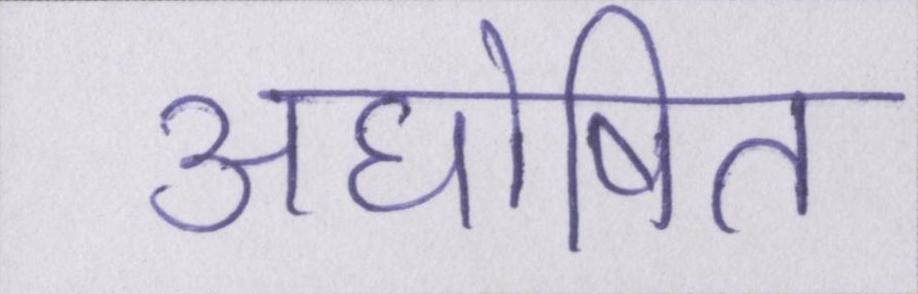 अघोषित